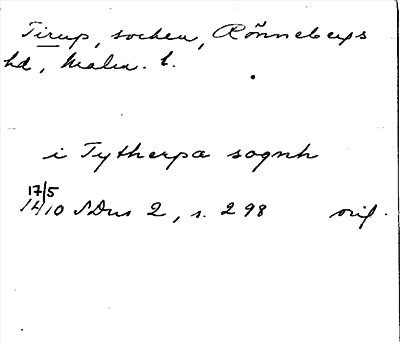 Tirup, socken, Rönnebergs
hd, Malm. l.
i Tytherpa sognh
17/5
1410 SDns 2, s. 298 orig.